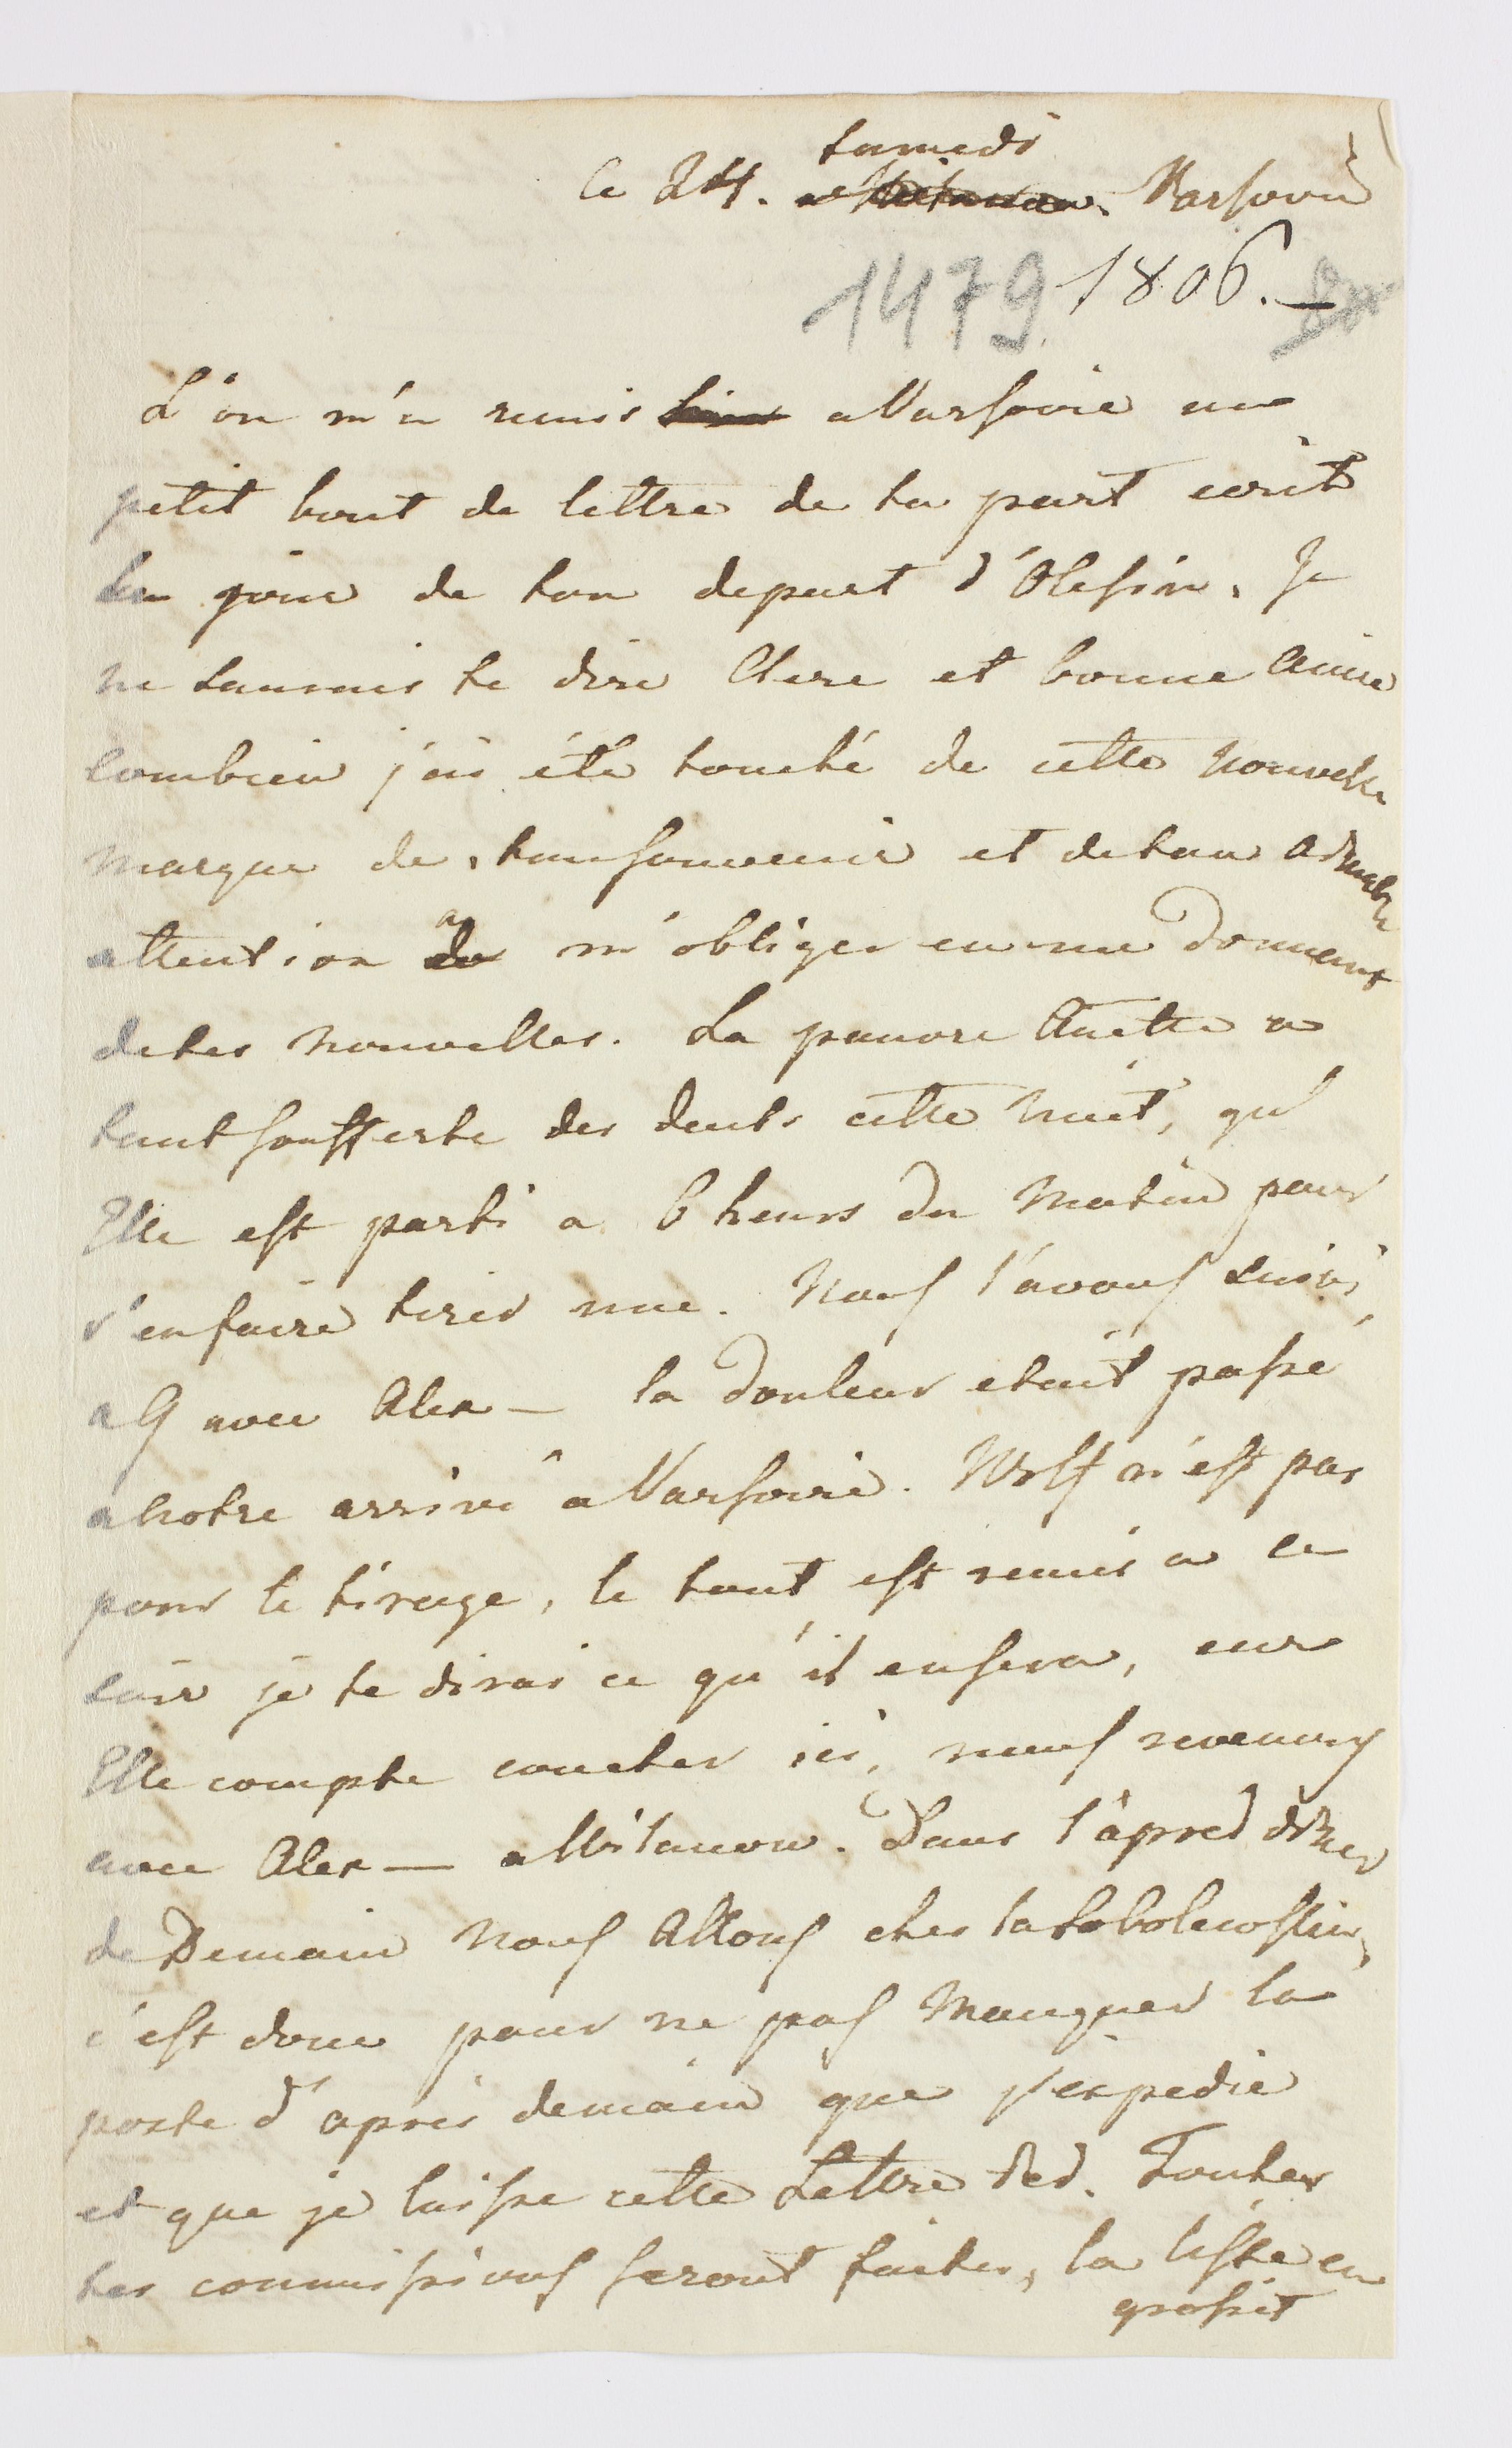 samedi
Ce 24. Varsovie
1479. 1806. —
L'on m'a remis a Varsovie un
petit bout de lettre de ta part ecrit
le jour de ton depart d'Olesin. Je
ne saurais te dire Chere et bonne Amie
combien j'ais été touché de cette Nouvelle
marque de ton souvenir et de ton Admirable
attention a m'obliger en me Donnant
de tes Nouvelles. La pauvre Anette a
tant soufferte des dents cette Nuit, qu'
Elle est parti a 6 heurs du Matin pour
s'en faire tirer une. Nous l'avons suivi,
a 9 avec Alex — la Douleur etait passé
a notre arrivé a Varsovie. Wolf n'est pas
pour le tirage, le tout est remis a ce
soir je te dirai ce qu'il en sera, car
Elle compte coucher ici, nous revenons
avec Alex — a Wilanow. Dans l'apred diner
de Demain Nous Allons ches la Sobolewska,
c'est donc pour ne pas Manquer la
poste d'apres demain que j'expedie
et que je laisse cette Lettre Red. Toutes
tes commissions seront faites, la liste en
grossit